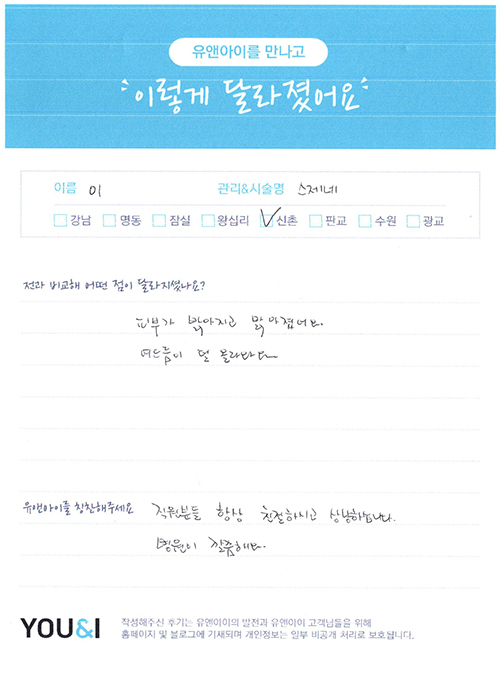 유앤아이를 만나고
이렇게 달라졌어요
이름 이 관리&시술명 스제네
강남 명동 잠실 왕십리 신촌 판교 수원 광교
전과 비교해 어떤 점이 달라지셨나요?
피부가 밝아지고 맑아졌어요.
여드름이 덜 올라와요
유앤아이를 칭찬해주세요 직원분들 항상 친절하시고 상냥하십니다.
병원이 깔끔해요.
YOU&I 작성해주신 후기는 유앤아이의 발전과 유앤아이 고객님들을 위해
홈페이지 및 블로그에 기재되며 개인정보는 일부 비공개 처리로 보호됩니다.